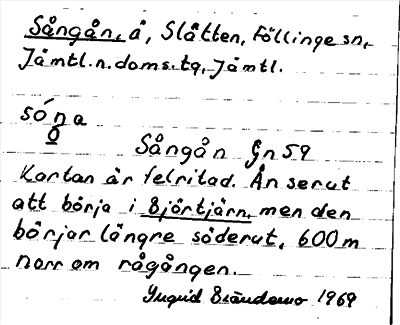 Sångån, å, Slåtten, Föllinge sn,
Jämtl.n.doms.tg, Jämtl.
sóna
o
Sångån Gn59
Kartan är felritad. Ån serut
att börja i Björtjärn, men den
börjar längre söderut, 600m
norr om rågången.
Ingrid 1969